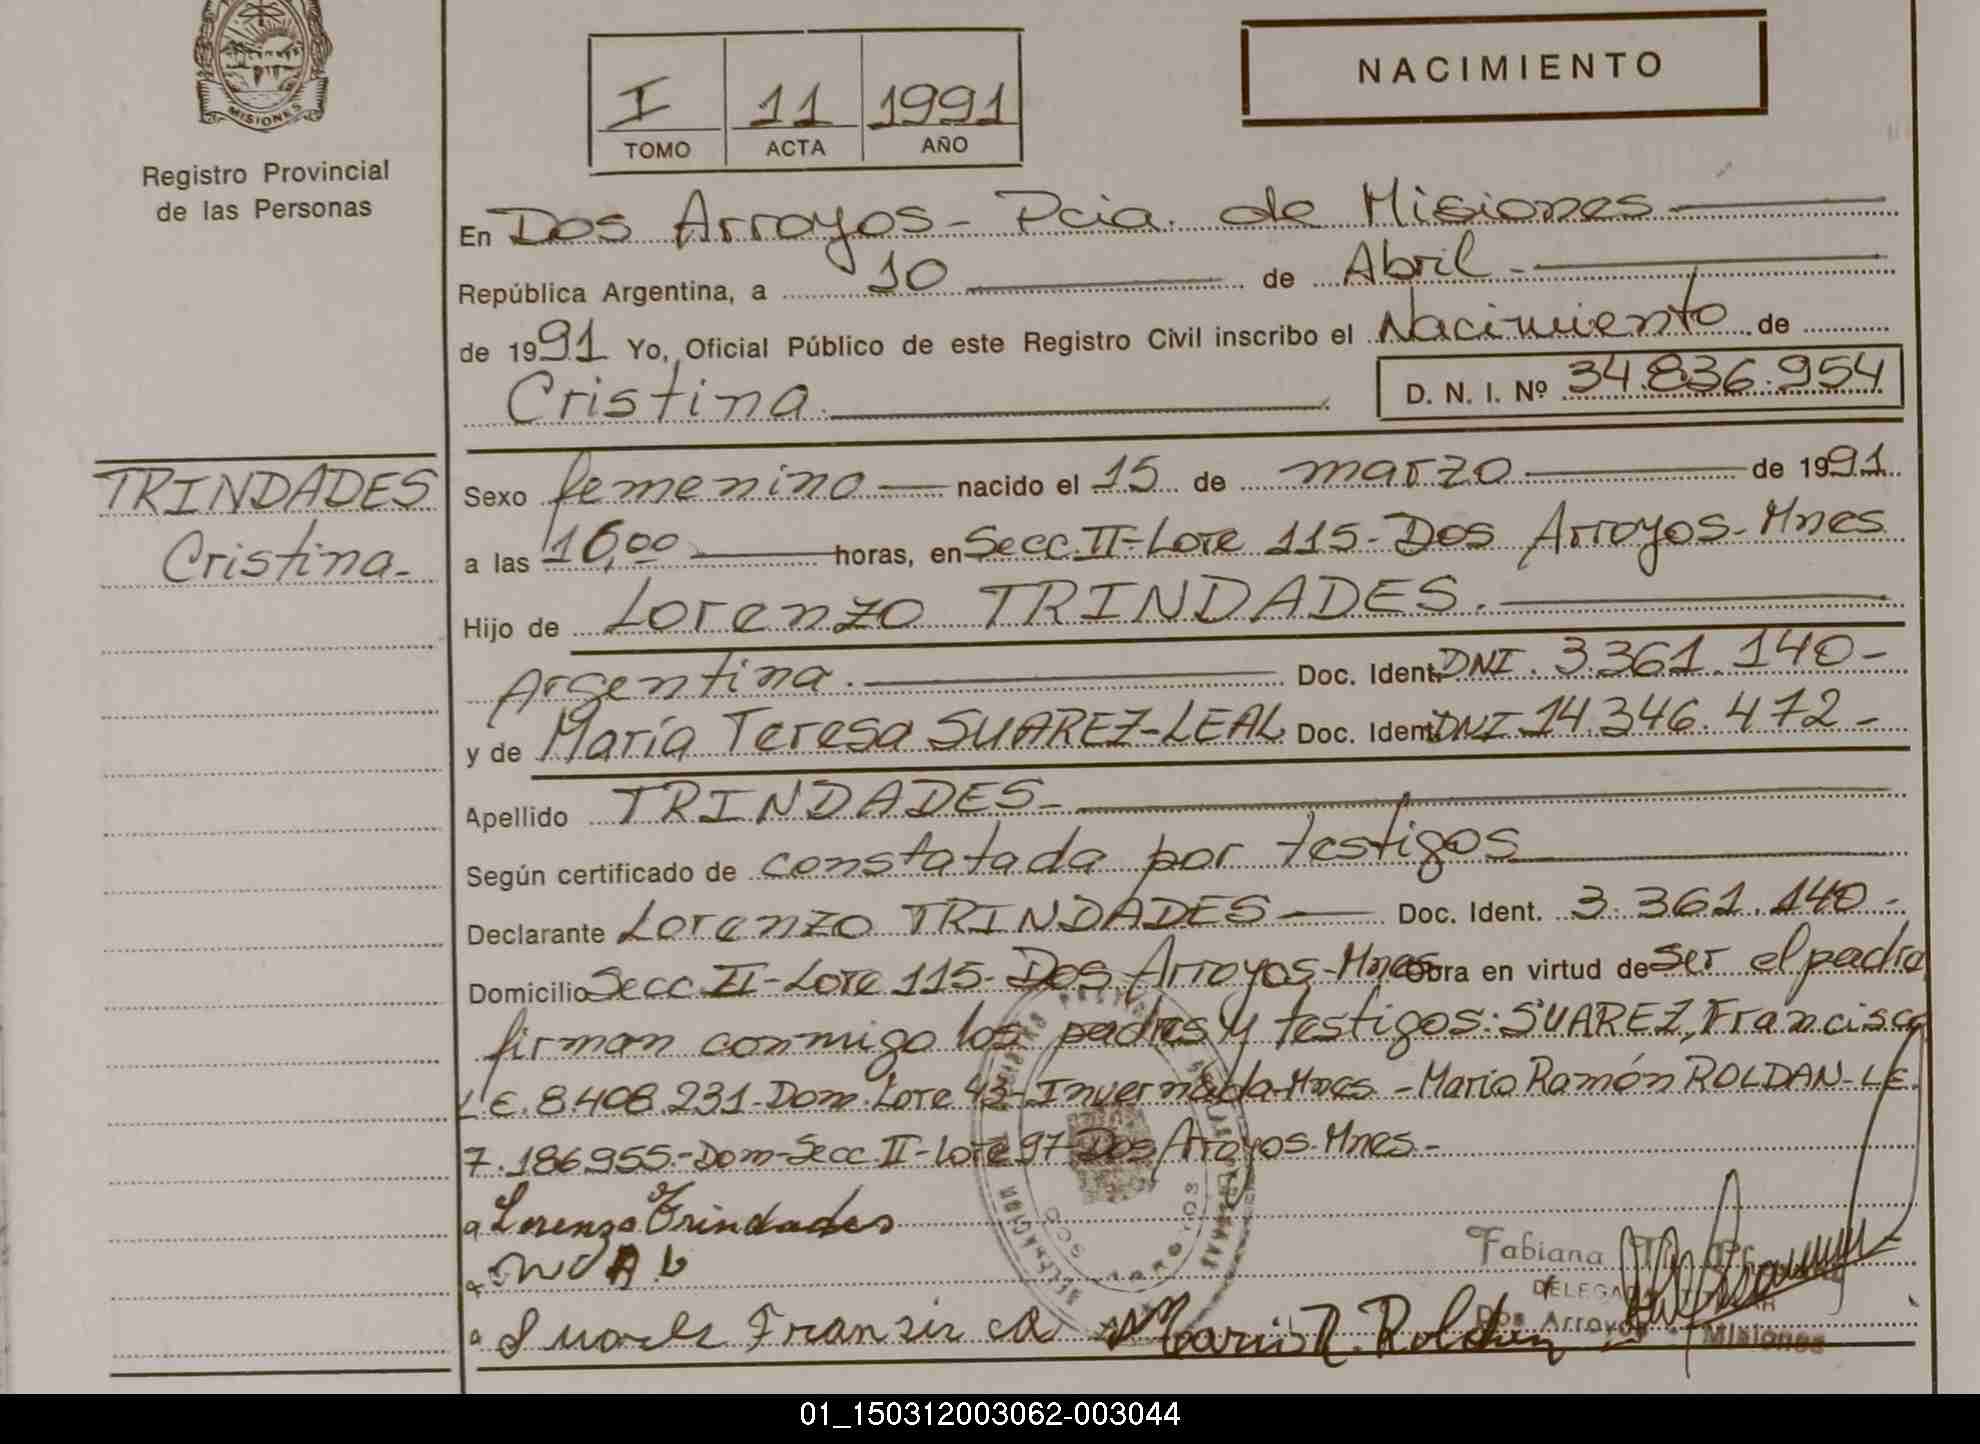 MISIONES
Registro Provincial
de las Personas
I 11 1991
TOMO ACTA AÑO
NACIMIENTO
En Dos Arroyos - Pcia. de Misiones
República Argentina, a 10 de Abril
de 1991 Yo, Oficial Público de este Registro Civil inscribo el Nacimiento de
Cristina D. N. I. Nº 34.836.954
TRINDADES
Cristina
Sexo femenino nacido el 15 de marzo de 1991
a las 16,00 horas, en Secc. II - Lote 115 - Dos Arroyos - Mnes
Hijo de Lorenzo TRINDADES.
Argentina. Doc. Ident. DNI. 3.361.140 -
y de María Teresa SUAREZ-LEAL Doc. Ident. DNI 14.346.472 -
Apellido TRINDADES -
Según certificado de constatada por testigos
Declarante Lorenzo TRINDADES Doc. Ident. 3.361.140 -
Domicilio Secc II - Lote 115 - Dos Arroyos - Mnes Obra en virtud de ser el padre
firman conmigo los padres y testigos: SUAREZ, Francisca
L.E. 8.408.231 - Dom. Lote 43 - Invernada - Mnes - Mario Ramón ROLDAN - L.E.
7.186955 - Dom - Secc. II - Lote 97 Dos Arroyos - Mnes. -
Lorenzo Trindades
Suarez Fransisca Mario R. Roldan
Fabiana
DELEGADA TITULAR
Dos Arroyos - Misiones
01_150312003062-003044